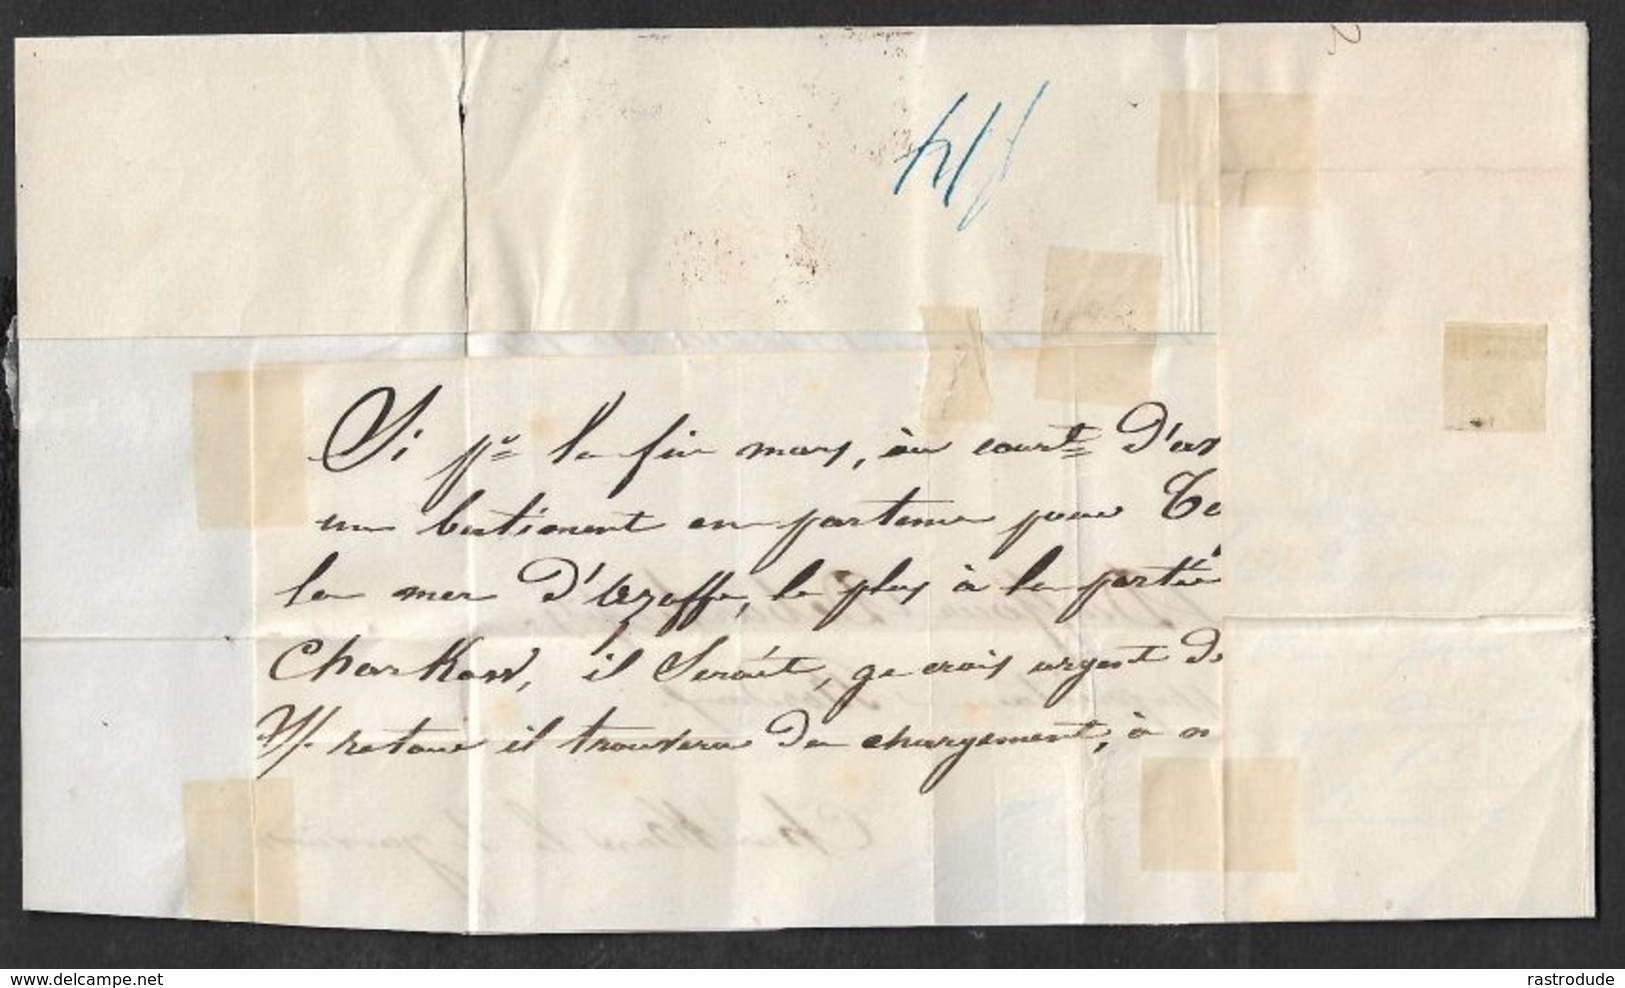 Si pr. la fin mars, ou court. d'av
un bastiment en partence pour Te
la mer d'Azoffe, le plus à la portée
Charkow, il Serait, je crois urgent de
S/. retour il trouvera du chargement, à n
delcampe.net
rastrodude